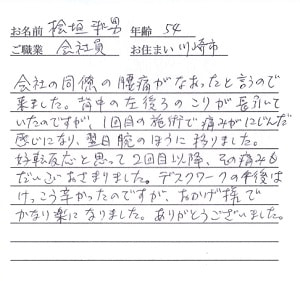 お名前 桧垣 和男 年齢 54
ご職業 会社員 お住まい 川崎市
会社の同僚の腰痛がなおったと言うので
来ました。背中の左後ろのこりが長引いて
いたのですが、1回目の施術で痛みがにじんだ
感じになり、翌日腕のほうに移りました。
好転反応と思って2回目以降、その痛みも
だいぶおさまりました。デスクワークの午後は
けっこう辛かったのですが、おかげ様で
かなり楽になりました。ありがとうございました。